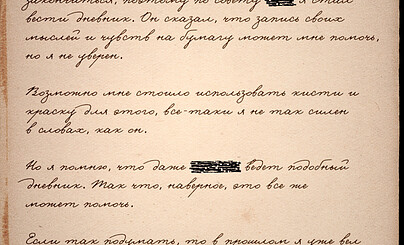 закончиться, поэтому по совету я стал
вести дневник. Он сказал, что запись своих
мыслей и чувств на бумагу может мне помочь,
но я не уверен.
Возможно мне стоило использовать кисти и
краску для этого, все-таки я не так силен
в словах, как он.
Но я помню, что даже ведет подобный
дневник. Так что, наверное, это все же
может помочь.
Если так подумать, то в прошлом я уже вел